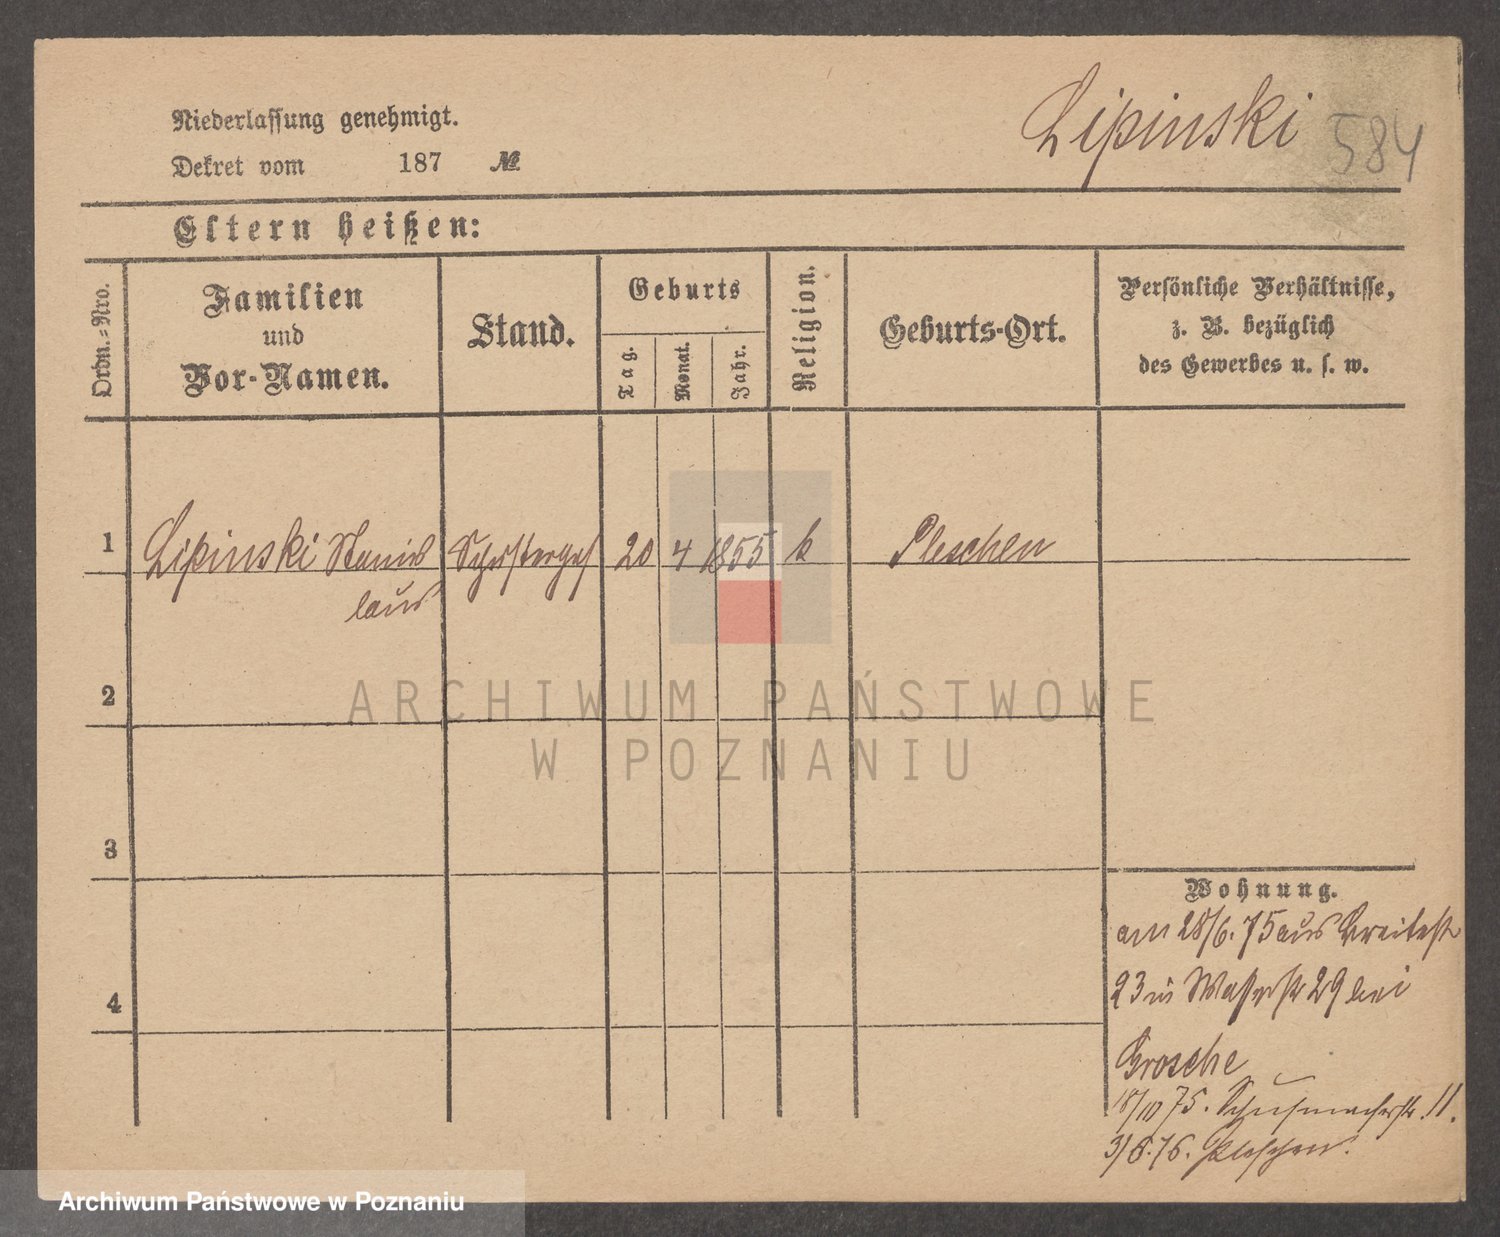 Niederlassung genehmigt.
Dekret vom 187 №
Lipinski 584
Eltern heißen:
Ordn.-Nro.
Familien
und
Vor-Namen.
Stand.
Geburts
Tag.
Monat.
Jahr.
Religion.
Geburts-Ort.
Persönliche Verhältnisse,
z. B. bezüglich
des Gewerbes u. s. w.
1 Lipinski Stanis Schustergs 20 4 1855 k Pleschen
laus
2
ARCHIWUM PAŃSTWOWE
W POZNANIU
3
4
Wohnung.
am 28/6. 75 aus Breitestr
23 in Wasserstr 29 bei
Grosche
18/10 75. Schuhmacherstr. 11.
3/8.76. Pleschen.
Archiwum Państwowe w Poznaniu